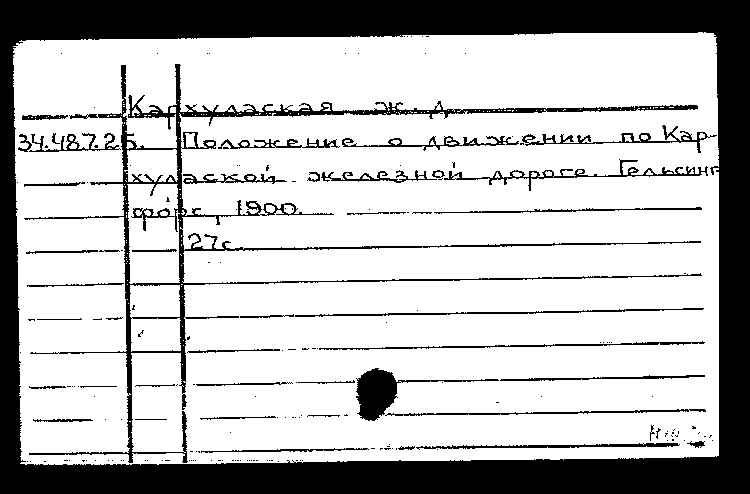 Кархулаская ж. д.
34.487.25. Положение о движении по Кар-
хулаской железной дороге. Гельсинг
форс, 1900.
27с.